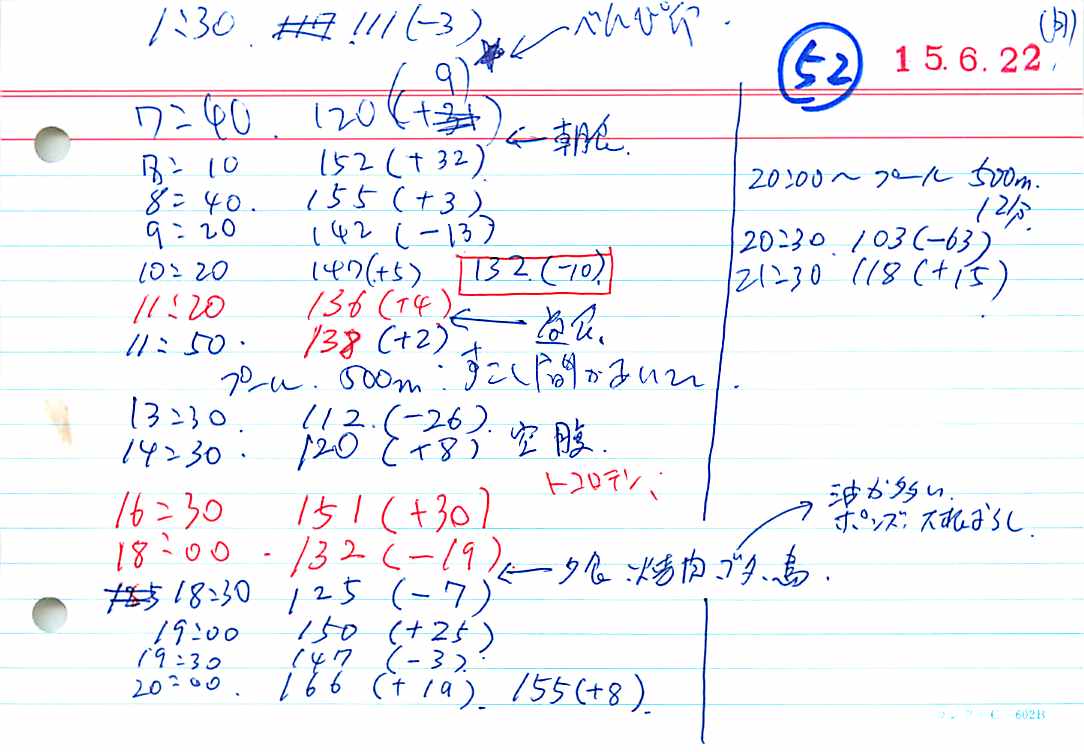 (月)
52 15.6.22
1:30. 111(-3) べんぴ
(9)
7:40. 120(+
←朝食.
8:10 152(+32)
8:40. 155(+3)
9:20 142(-13)
10:20 147(+5) 132(-10)
11:20 136(+4)
←昼食.
11:50. 138(+2)
プール. 500m: すこし間があいて.
13:30. 112.(-26).
14:30. 120(+8) 空腹.
トコロテン、
16:30 151(+30)
18:00. 132(-19)
←夕食:焼肉.ブタ、鳥.
油が多い.
ポンズ:大根おろし.
18:30 125(-7)
19:00 150(+25)
19:30 147(-3)
20:00. 166(+19). 155(+8).
20:00〜プール 500m.
12分.
20:30. 103(-63)
21:30 118(+15)
602B